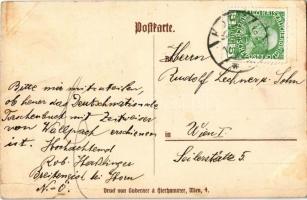 Postkarte.
Herrn
Rudolf Lechner & Sohn
in
Wien I.
Seilerstätte 5.
Bitte mir mitzuteilen,
ob heuer das Deutschnationale
Taschenbuch mit Zeitweiser
von Wallpach erschienen
ist. Hochachtend
Rob. Haßlinger
bei Horn
N.-Ö.
Druck von Gaberner & Hierhammer, Wien, 4.